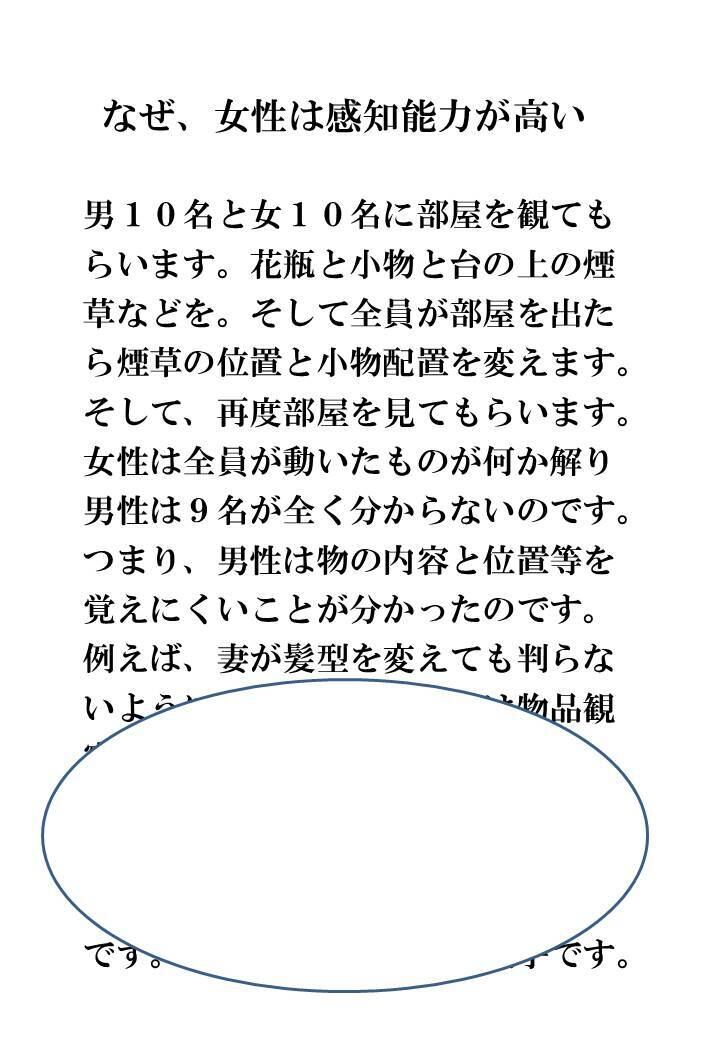 なぜ、女性は感知能力が高い
男１０名と女１０名に部屋を観ても
らいます。花瓶と小物と台の上の煙
草などを。そして全員が部屋を出た
ら煙草の位置と小物配置を変えます。
そして、再度部屋を見てもらいます。
女性は全員が動いたものが何か解り
男性は９名が全く分からないのです。
つまり、男性は物の内容と位置等を
覚えにくいことが分かったのです。
例えば、妻が髪型を変えても判らな
いよう 物品観
です。 です。